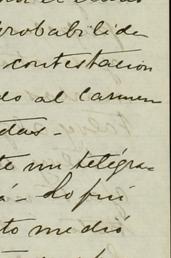 probabilida
contestación
do al Carmen
das-
te mi telégra-
á- Lo fui
to me dió